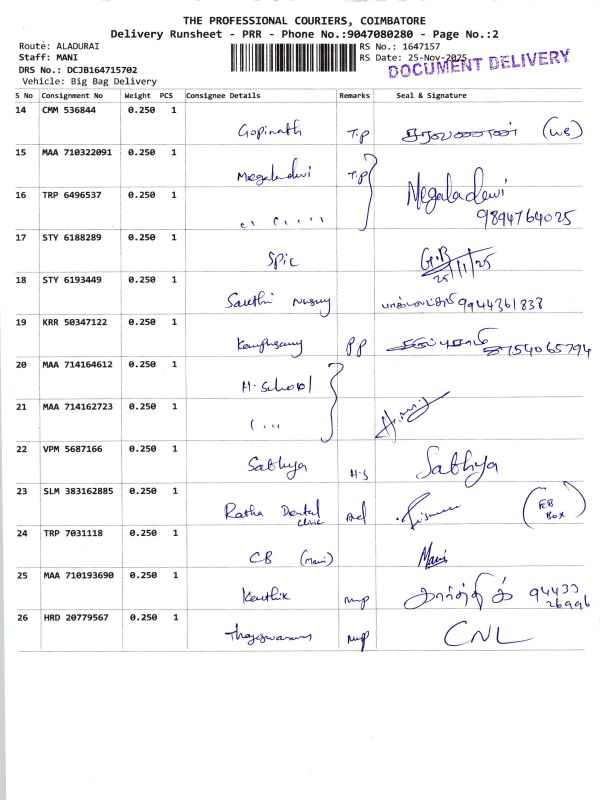 THE PROFESSIONAL COURIERS, COIMBATORE
Delivery Runsheet - PRR - Phone No.:9047080280 - Page No.:2
Route: ALADURAI
Staff: MANI
DRS No.: DCJB164715702
Vehicle: Big Bag Delivery
RS No.: 1647157
RS Date: 25-Nov-2025
DOCUMENT DELIVERY
S No Consignment No Weight PCS Consignee Details Remarks Seal & Signature
14 CMM 536844 0.250 1
Gopinath T.P சரவணன்
15 MAA 710322091 0.250 1
Megaladevi T.P Megaladewi
16 TRP 6496537 0.250 1
9894764025
17 STY 6188289 0.250 1
Spic G.B 25/11/25
18 STY 6193449 0.250 1
9944361838
19 KRR 50347122 0.250 1
PP 8754065794
20 MAA 714164612 0.250 1
H.School
21 MAA 714162723 0.250 1
22 VPM 5687166 0.250 1
Sathya H.S Sathya
23 SLM 383162885 0.250 1
Ratha Dental clinic
BOX
24 TRP 7031118 0.250 1
CB (Mani) Mani
25 MAA 710193690 0.250 1
Karthik mp கார்த்திக் 94433 26996
26 HRD 20779567 0.250 1
mp CNL